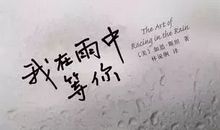 我在雨中
等你
The Art of
Racing in the Rain
(美) 加思·斯坦 著
林说俐 译